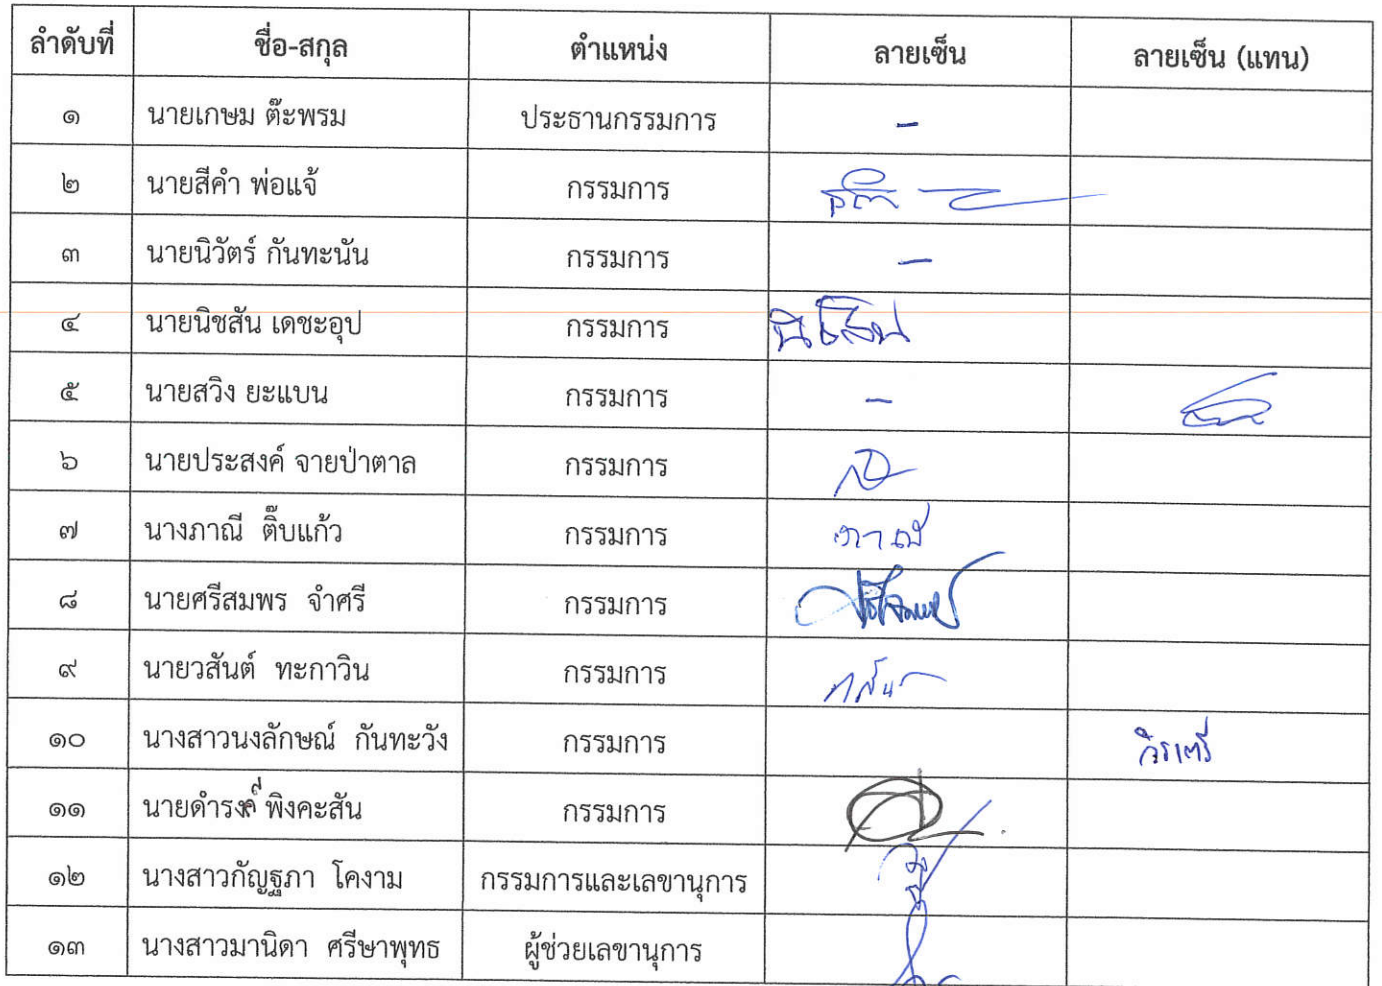 ลำดับที่ ชื่อ-สกุล ตำแหน่ง ลายเซ็น ลายเซ็น (แทน)
๑ นายเกษม ต๊ะพรม ประธานกรรมการ -
๒ นายสีคำ พ่อแจ้ กรรมการ
๓ นายนิวัตร์ กันทะนัน กรรมการ -
๔ นายนิชสัน เดชะอุป กรรมการ
๕ นายสวิง ยะแบน กรรมการ -
๖ นายประสงค์ จายป่าตาล กรรมการ
๗ นางภาณี ติ๊บแก้ว กรรมการ ภาณี
๘ นายศรีสมพร จำศรี กรรมการ
๙ นายวสันต์ ทะกาวิน กรรมการ วสันต์
๑๐ นางสาวนงลักษณ์ กันทะวัง กรรมการ
๑๑ นายดำรงค์ พิงคะสัน กรรมการ
๑๒ นางสาวกัญฐภา โคงาม กรรมการและเลขานุการ
๑๓ นางสาวมานิดา ศรีษาพุทธ ผู้ช่วยเลขานุการ